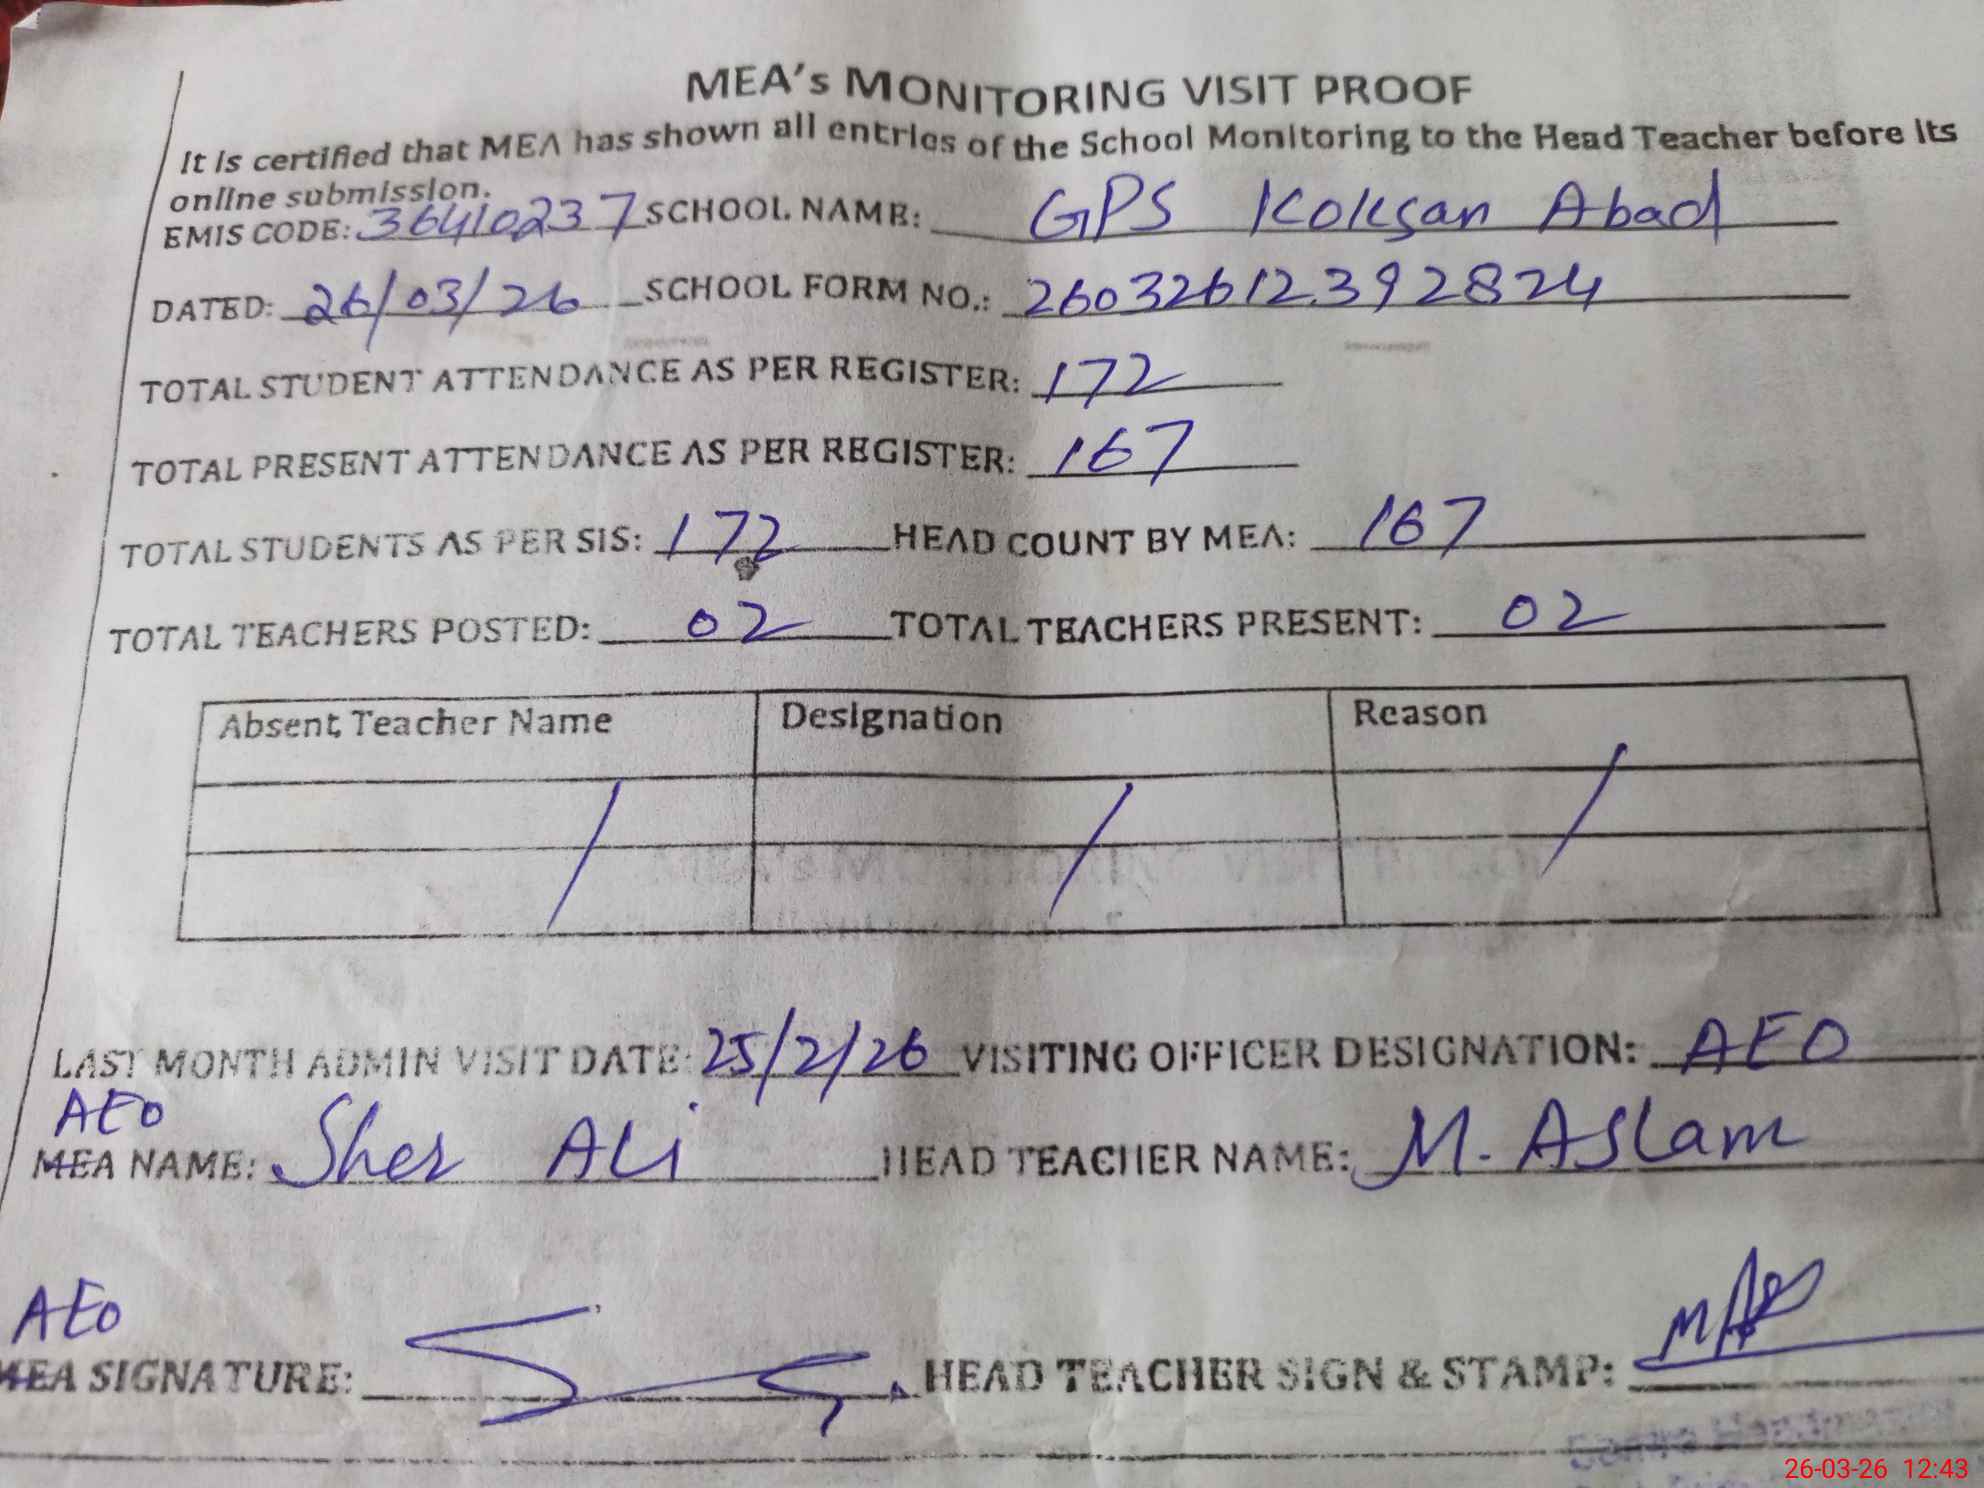 MEA's MONITORING VISIT PROOF
It is certified that MEA has shown all entries of the School Monitoring to the Head Teacher before its
online submission.
EMIS CODE: 36410237 SCHOOL NAME: GPS Koksan Abad
DATED: 26/03/26 SCHOOL FORM NO.: 26032612392824
TOTAL STUDENT ATTENDANCE AS PER REGISTER: 172
TOTAL PRESENT ATTENDANCE AS PER REGISTER: 167
TOTAL STUDENTS AS PER SIS: 172 HEAD COUNT BY MEA: 167
TOTAL TEACHERS POSTED: 02 TOTAL TEACHERS PRESENT: 02
Absent Teacher Name Designation Reason
LAST MONTH ADMIN VISIT DATE: 25/2/26 VISITING OFFICER DESIGNATION: AEO
AEO
MEA NAME: Sher Ali HEAD TEACHER NAME: M. ASlam
AEO
MEA SIGNATURE: HEAD TEACHER SIGN & STAMP:
26-03-26 12:43